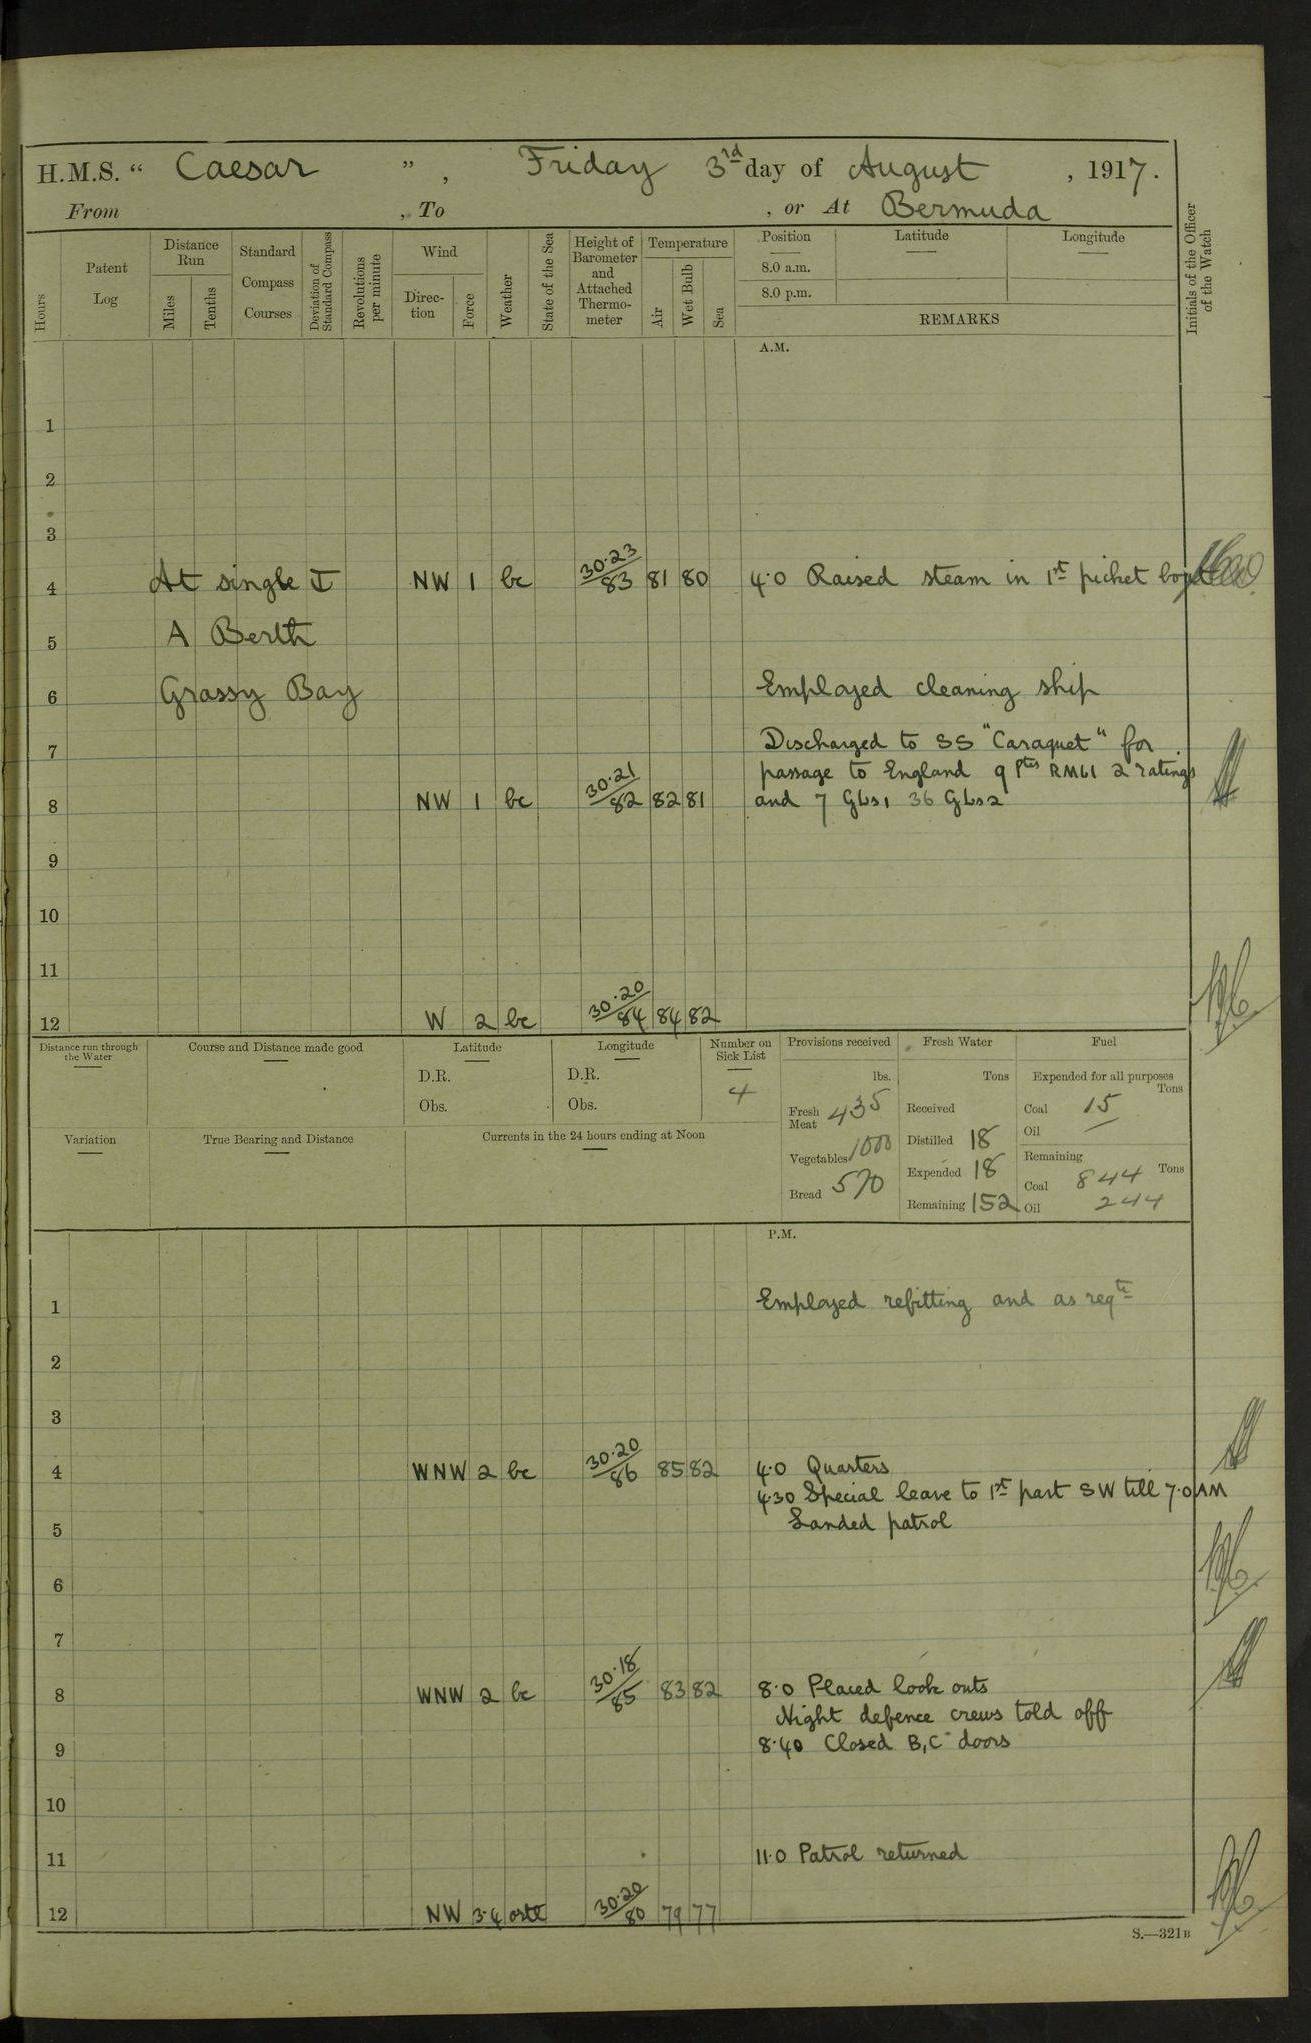 H.M.S. “ Caesar ” , Friday 3rd day of August , 1917.
From , To , or At Bermuda
Hours
Patent Log
Distance Run
Miles
Tenths
Standard Compass Courses
Deviation of Standard Compass
Revolutions per minute
Wind
Direc-tion
Force
Weather
State of the Sea
Height of Barometer and Attached Thermo-meter
Temperature
Air
Wet Bulb
Sea
Position
8.0 a.m.
8.0 p.m.
Latitude
Longitude
REMARKS
Initials of the Officer of the Watch
A.M.
1
2
3
4 At single I NW 1 bc 30·23/83 81 80 4·0 Raised steam in 1st picket boat
5 A Berth
6 Grassy Bay Employed cleaning ship
7 Discharged to SS "Caraquet" for
passage to England 9 Ptes RMLI 2 ratings
8 NW 1 bc 30·21/82 82 81 and 7 Gbs1 36 Gbs2
9
10
11
12 W 2 bc 30·20/84 84 82
Distance run through the Water
Course and Distance made good
Latitude
D.R.
Obs.
Longitude
D.R.
Obs.
Number on Sick List
4
Provisions received
lbs.
Fresh Meat 435
Vegetables 1000
Bread 570
Fresh Water
Tons
Received
Distilled 18
Expended 18
Remaining 152
Fuel
Expended for all purposes
Tons
Coal 15
Oil —
Remaining
Tons
Coal 844
Oil 244
Variation
True Bearing and Distance
Currents in the 24 hours ending at Noon
P.M.
1 Employed refitting and as reqte
2
3
4 WNW 2 bc 30·20/86 85 82 4·0 Quarters
4·30 Special leave to 1st part SW till 7·0 AM
5 Landed patrol
6
7
8 WNW 2 bc 30·18/85 83 82 8·0 Placed look outs
Night defence crews told off
9 8·40 Closed B, C doors
10
11 11·0 Patrol returned
12 NW 3·4 30·20/80 79 77
S.—321B